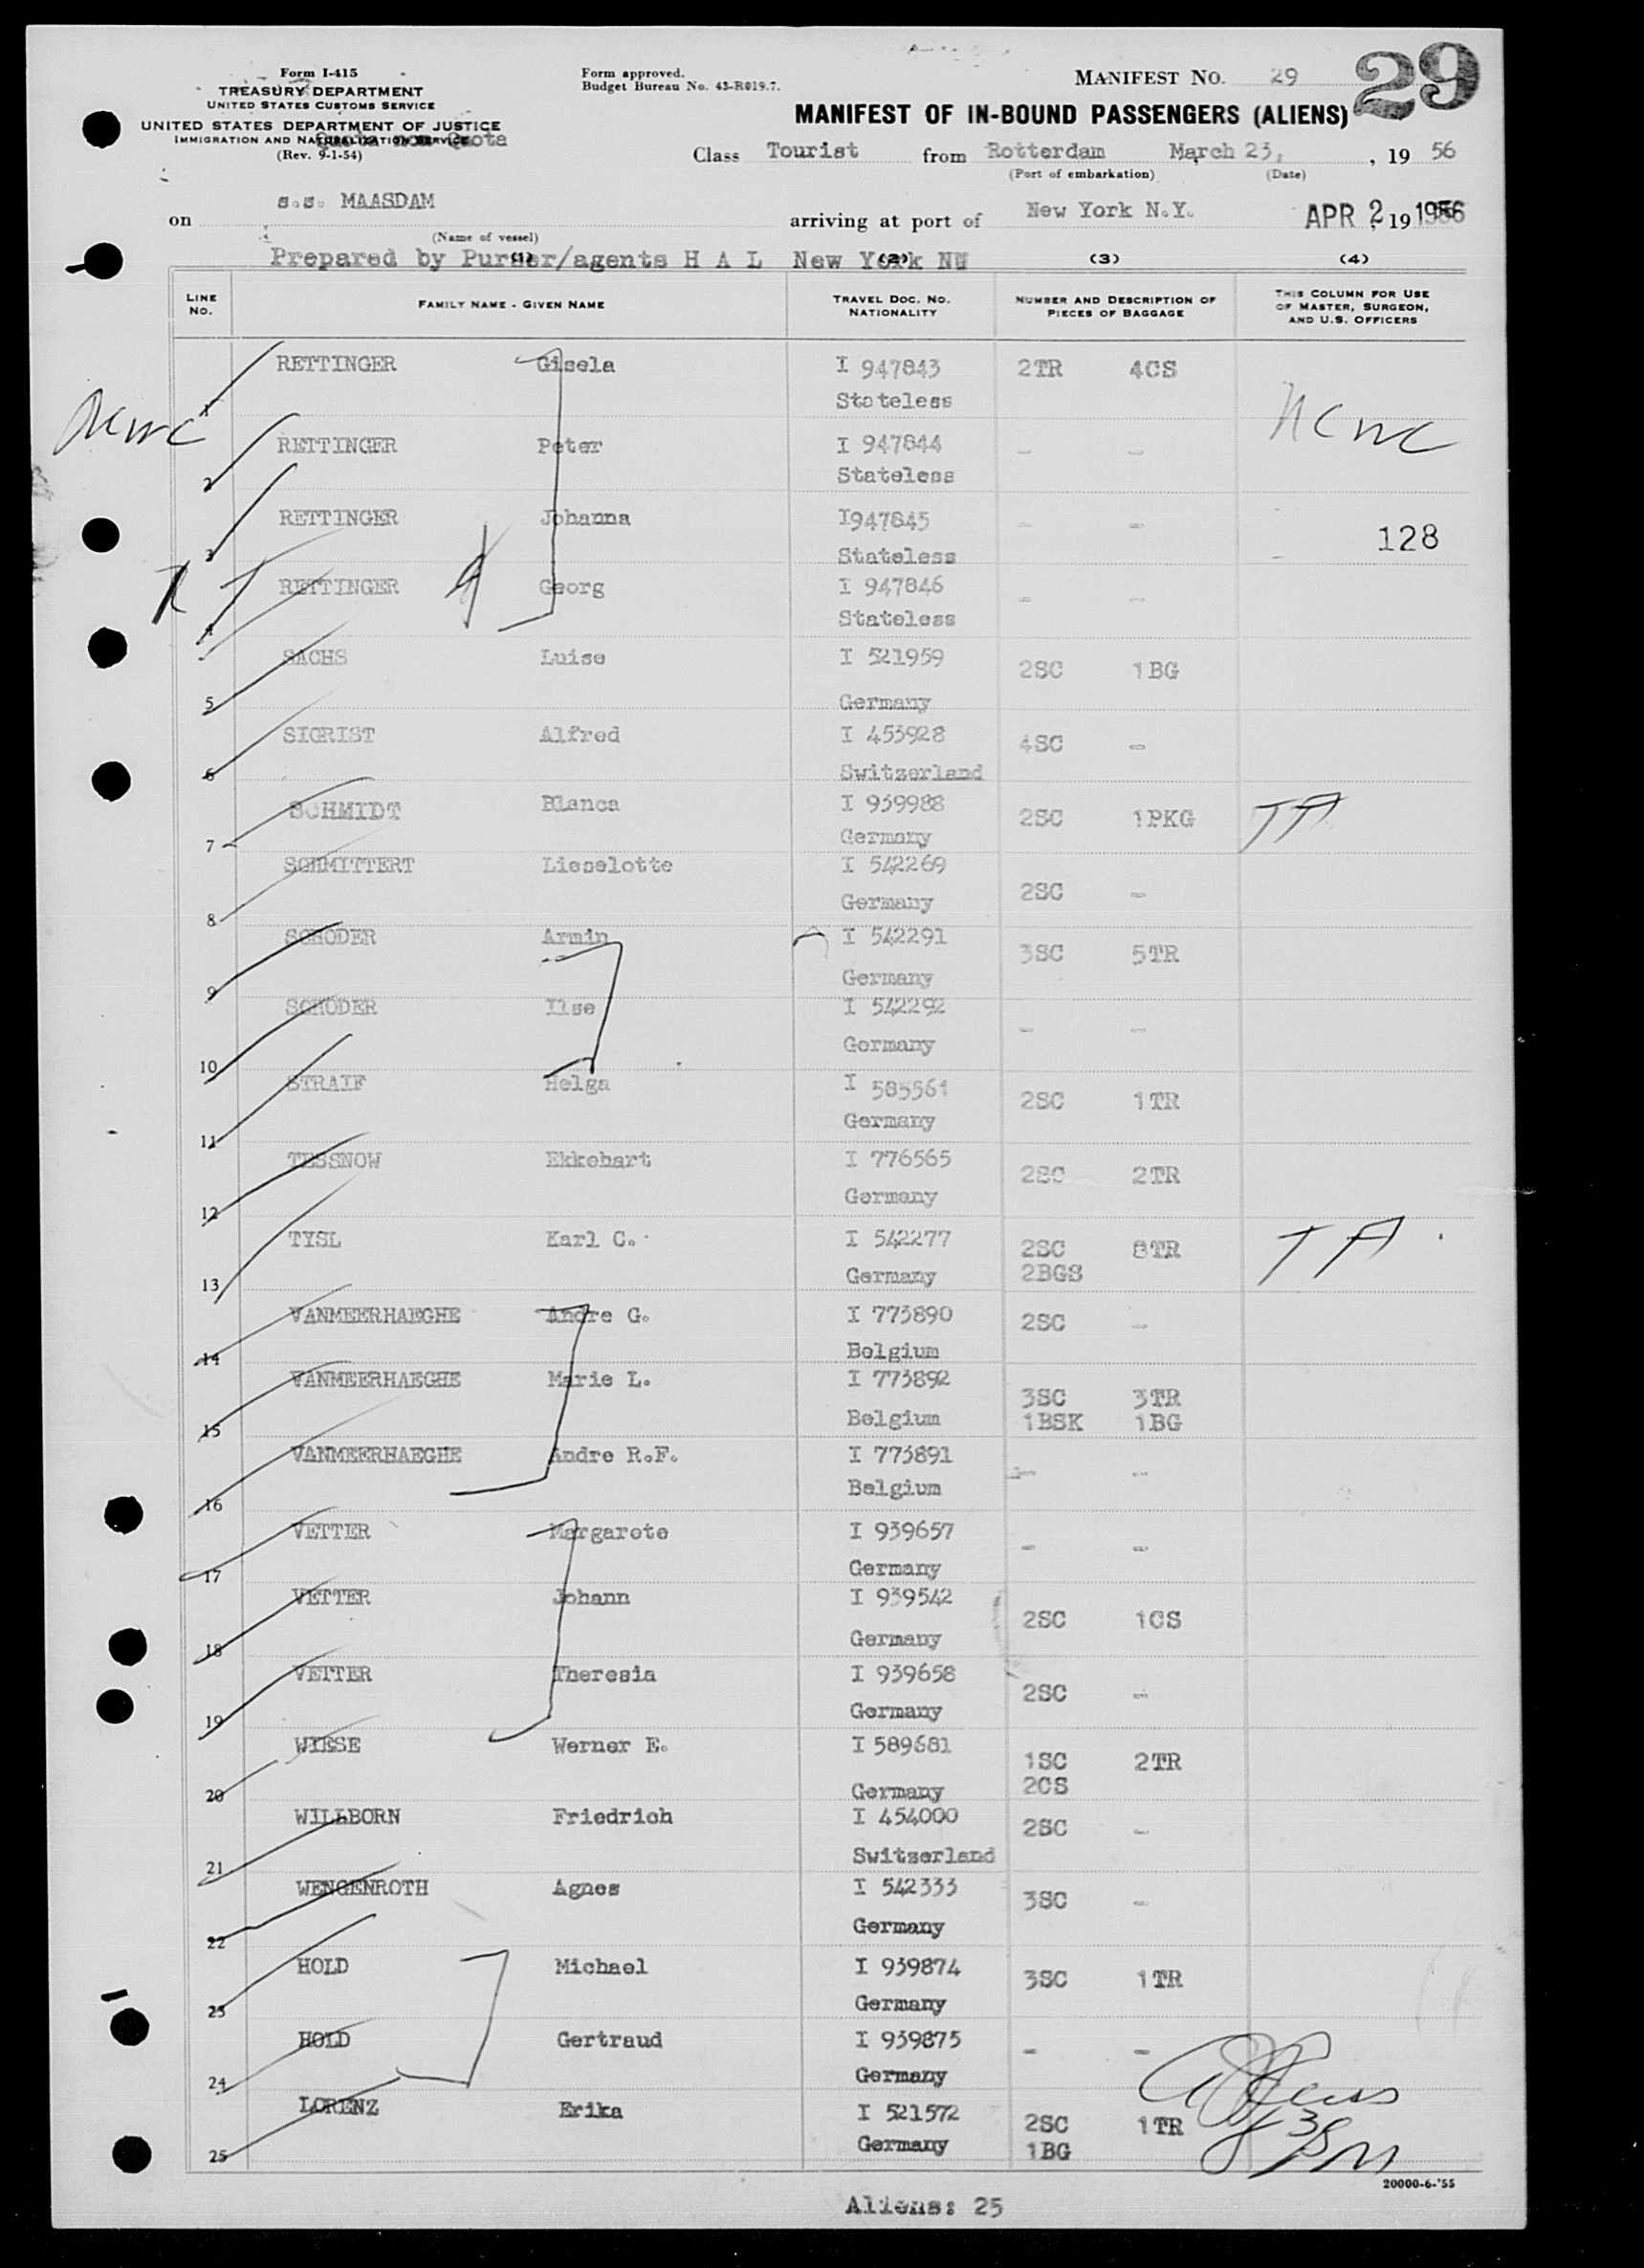 Form I-415
TREASURY DEPARTMENT
UNITED STATES CUSTOMS SERVICE
UNITED STATES DEPARTMENT OF JUSTICE
IMMIGRATION AND NATURALIZATION SERVICE
Quota non Quota
(Rev. 9-1-54)
Form approved.
Budget Bureau No. 43-R019.7.
MANIFEST NO. 29
29
MANIFEST OF IN-BOUND PASSENGERS (ALIENS)
Class Tourist from Rotterdam March 23, , 19 56
(Port of embarkation) (Date)
on s.s. MAASDAM arriving at port of New York N.Y. APR 2, 19 1956
(Name of vessel)
Prepared by Purser/agents H A L New York NY
(1) (2) (3) (4)
LINE NO. FAMILY NAME - GIVEN NAME TRAVEL DOC. NO. NATIONALITY NUMBER AND DESCRIPTION OF PIECES OF BAGGAGE THIS COLUMN FOR USE OF MASTER, SURGEON, AND U.S. OFFICERS
1 RETTINGER Gisela I 947843 2TR 4CS
Stateless
NCWC NCWC
2 RETTINGER Peter I 947844 - -
Stateless
3 RETTINGER Johanna I947845 - - 128
Stateless
4 RETTINGER Georg I 947846 - -
Stateless
5 SACHS Luise I 521959 2SC 1BG
Germany
6 SIGRIST Alfred I 453928 4SC -
Switzerland
7 SCHMIDT Blanca I 939988 2SC 1PKG TA
Germany
8 SCHMITTERT Lieselotte I 542269 2SC -
Germany
9 SCHODER Armin I 542291 3SC 5TR
Germany
10 SCHODER Ilse I 542292 - -
Germany
11 STRAIF Helga I 585561 2SC 1TR
Germany
12 TESSNOW Ekkehart I 776565 2SC 2TR
Germany
13 TYSL Karl C. I 542277 2SC 8TR TA
Germany 2BGS
14 VANMEERHAEGHE Andre G. I 773890 2SC -
Belgium
15 VANMEERHAEGHE Marie L. I 773892 3SC 3TR
Belgium 1BSK 1BG
16 VANMEERHAEGHE Andre R.F. I 773891 - -
Belgium
17 VETTER Margarete I 939657 - -
Germany
18 VETTER Johann I 939542 2SC 1CS
Germany
19 VETTER Theresia I 939658 2SC -
Germany
20 WIESE Werner E. I 589681 1SC 2TR
Germany 2CS
21 WILLBORN Friedrich I 454000 2SC -
Switzerland
22 WENGENROTH Agnes I 542333 3SC -
Germany
23 HOLD Michael I 939874 3SC 1TR
Germany
24 HOLD Gertraud I 939875 - -
Germany
25 LORENZ Erika I 521572 2SC 1TR
Germany 1BG
20000-6-'55
Aliens: 25